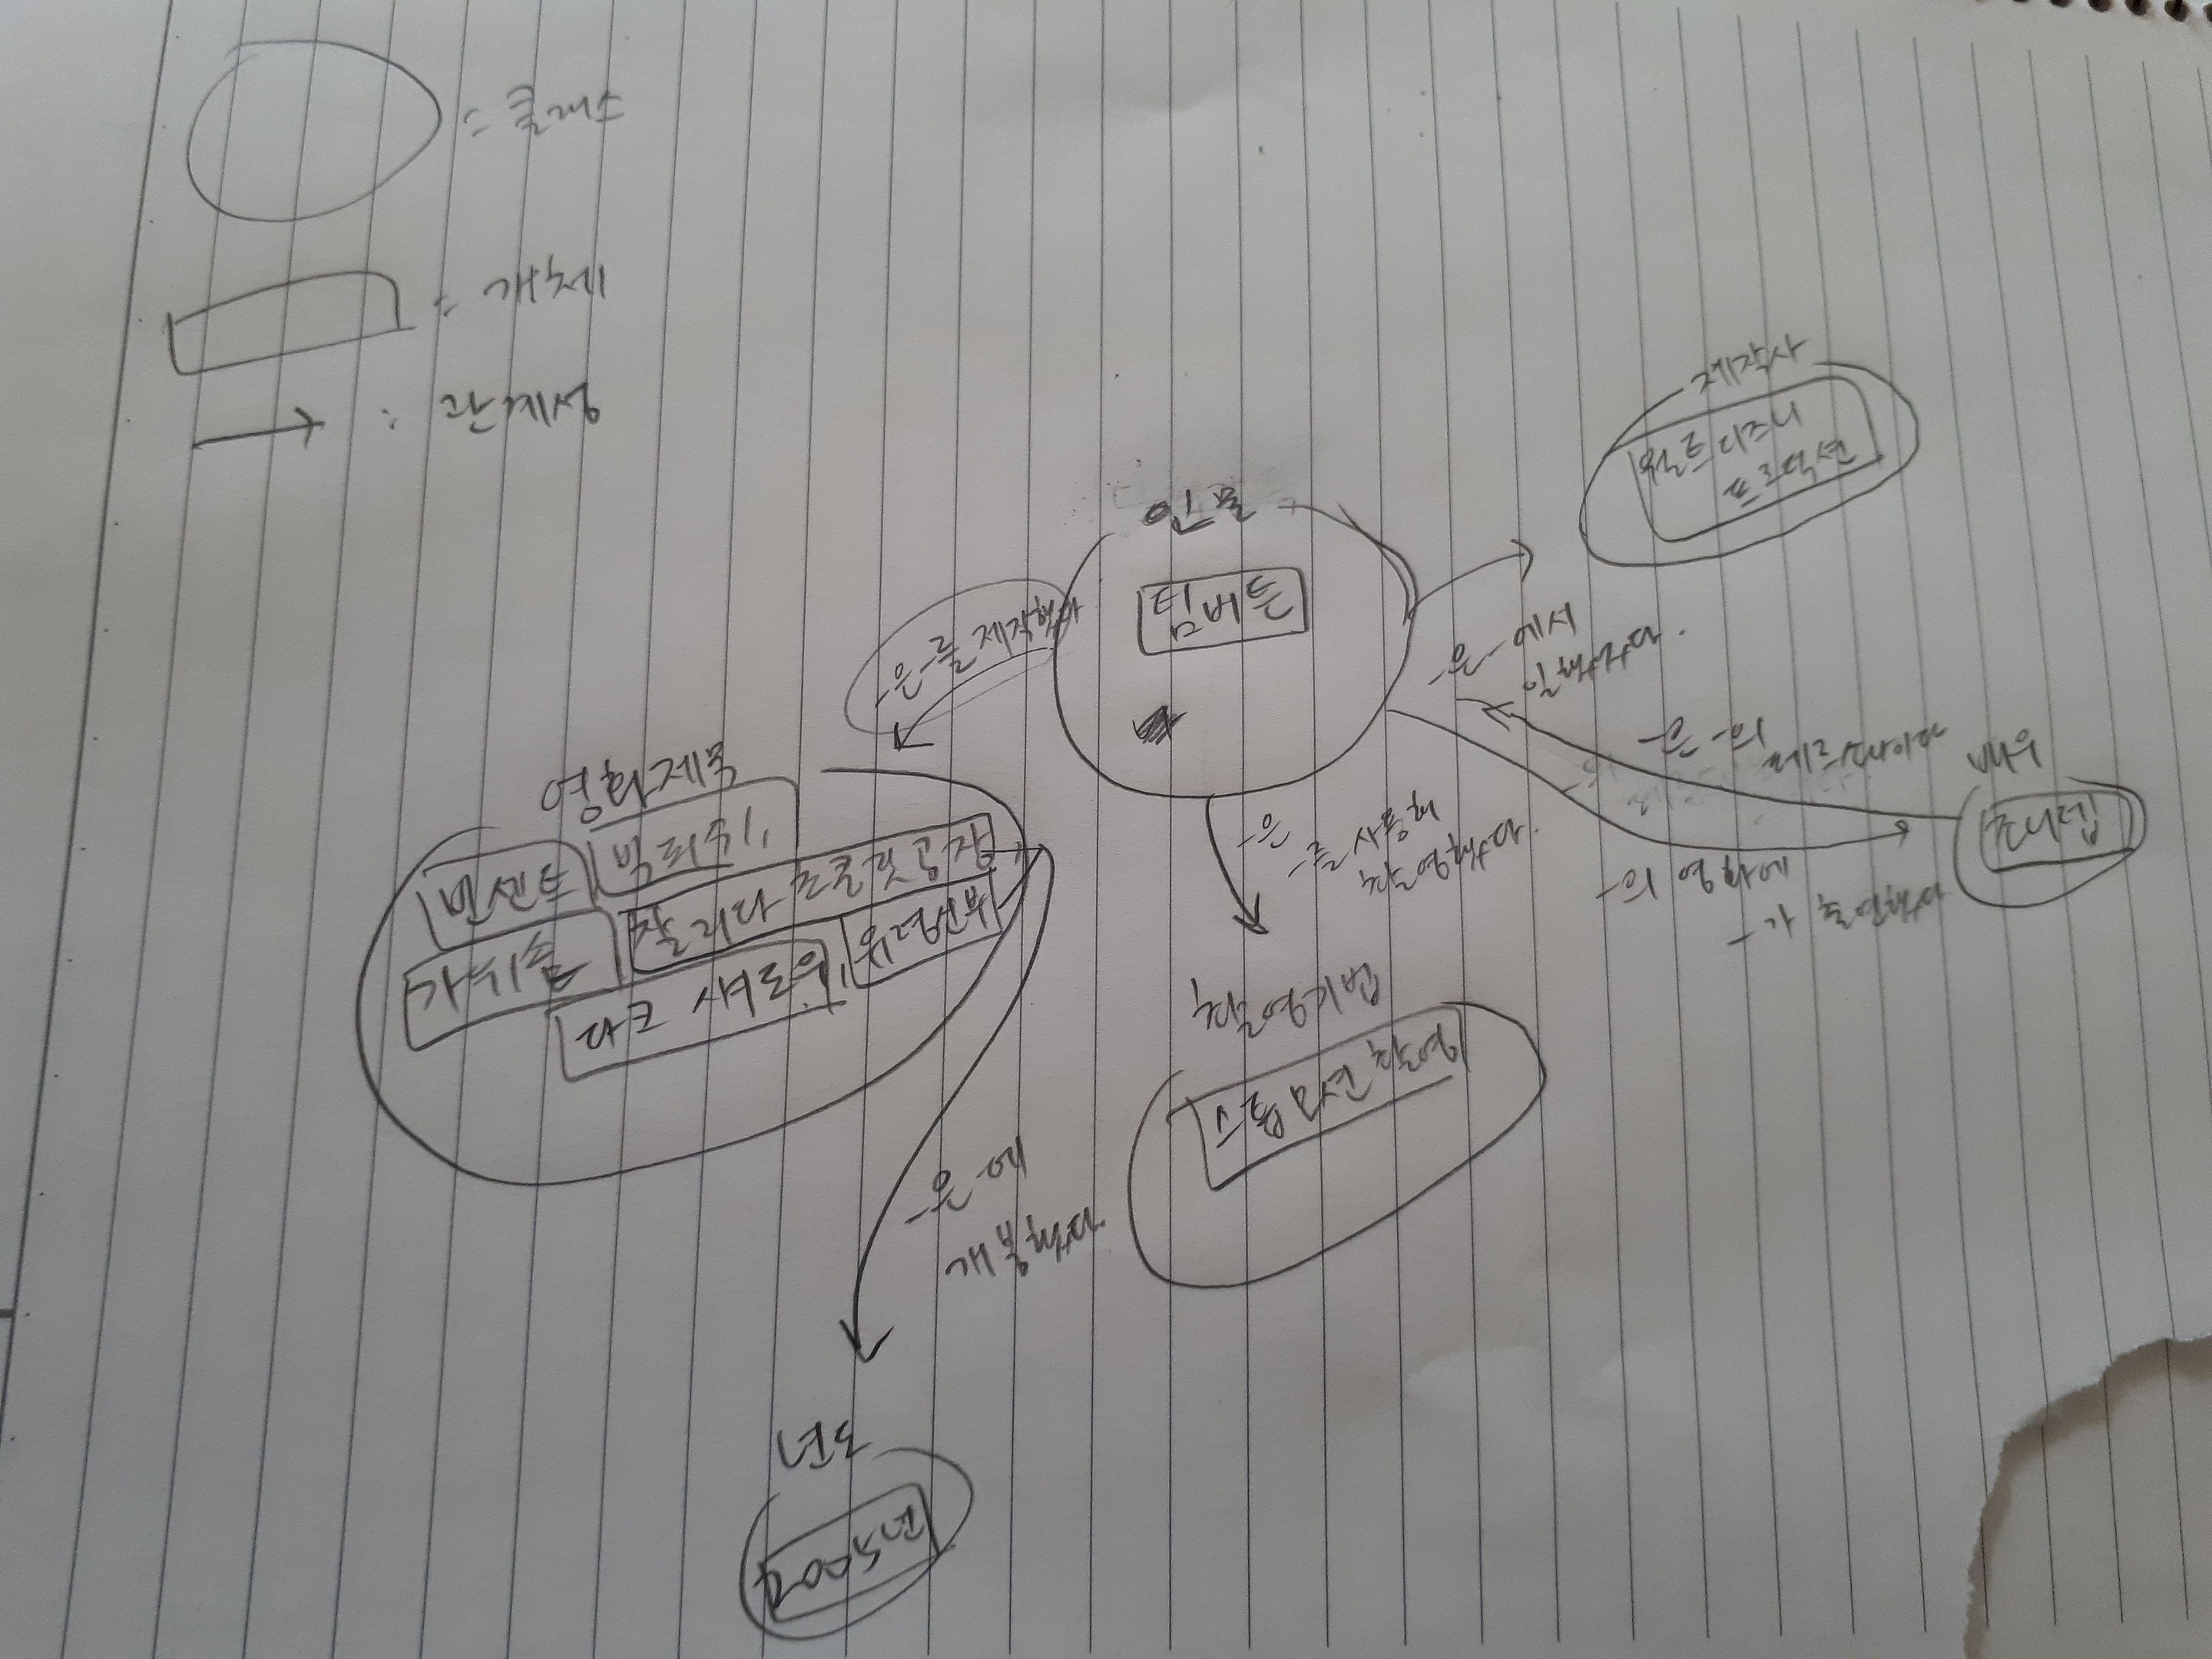 = 클래스
= 개체
: 관계성
제작사
월트디즈니
프로덕션
인물
팀버튼
-은-를 제작했다
-은-에서
일했었다.
-은-의
페르소나이다
배우
조니뎁
-의 영화에
-가 출연했다
-은
-를 사용해
촬영했다.
영화제목
빅피쉬,
빈센트
찰리와 초콜릿공장
가위손
유령신부
다크 섀도우,
촬영기법
스톱모션 촬영
-은 에
개봉했다.
년도
2005년